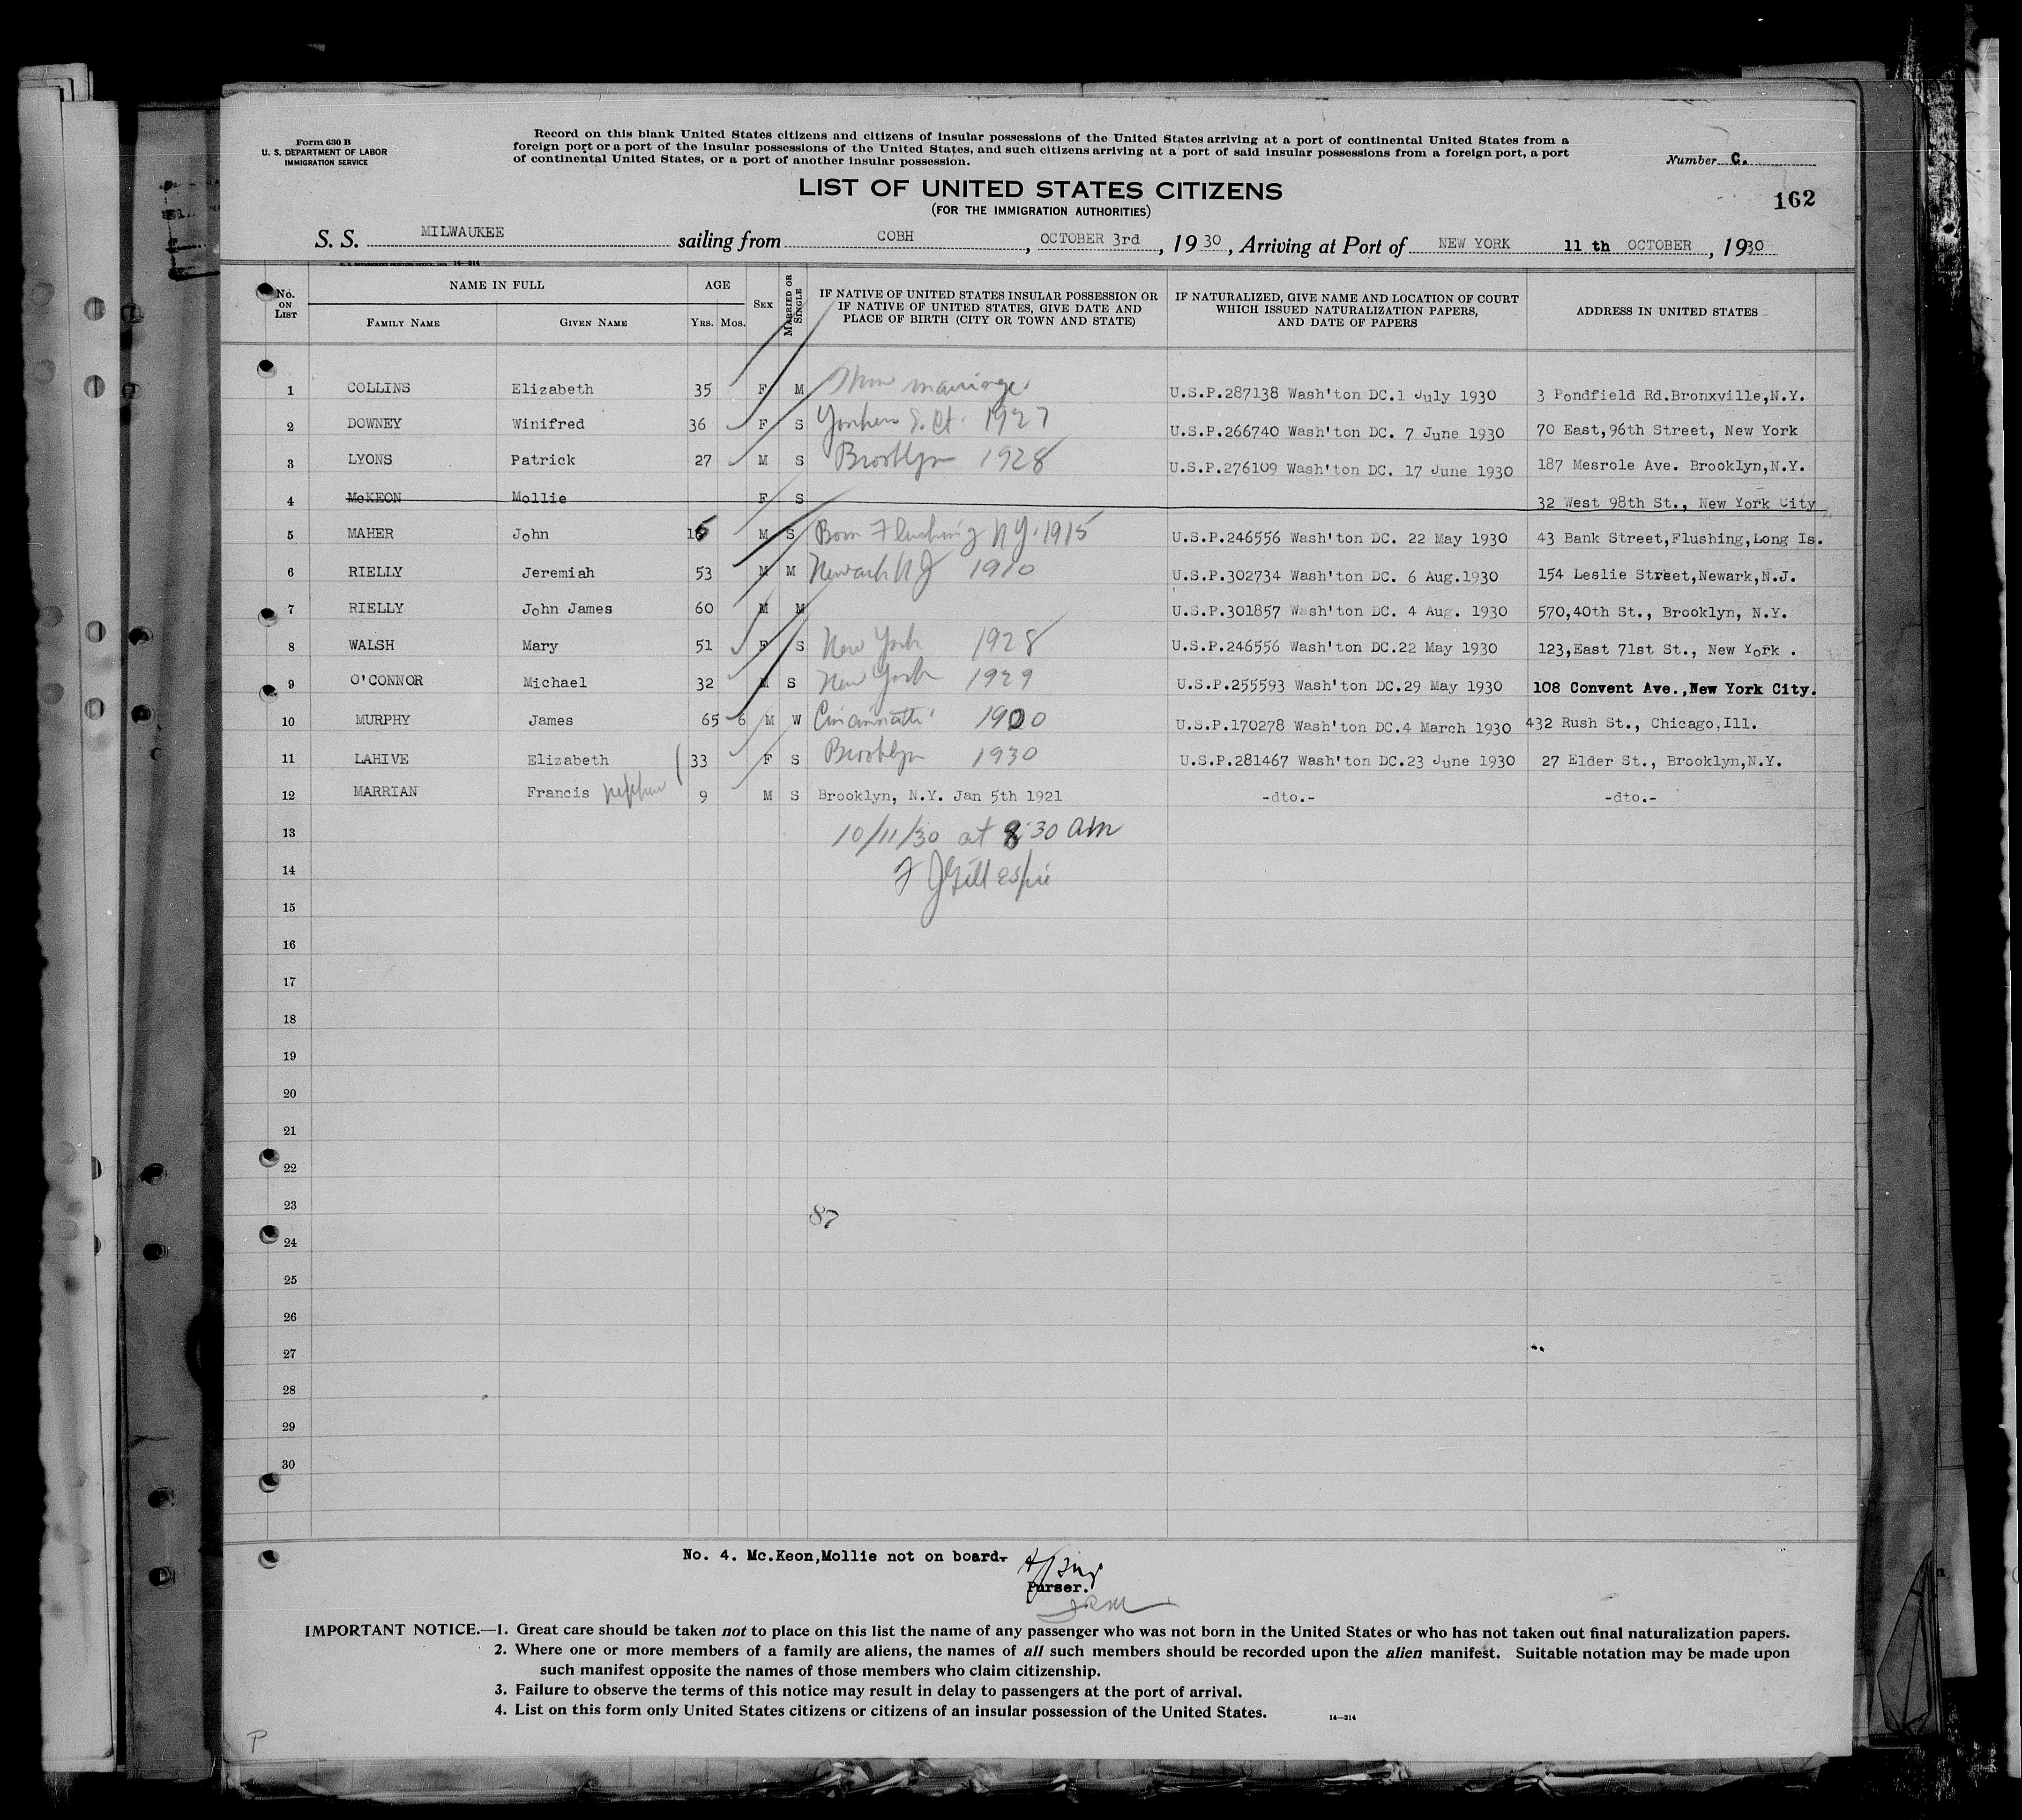 Form 630 B
U. S. DEPARTMENT OF LABOR
IMMIGRATION SERVICE
Record on this blank United States citizens and citizens of insular possessions of the United States arriving at a port of continental United States from a
foreign port or a port of the insular possessions of the United States, and such citizens arriving at a port of said insular possessions from a foreign port, a port
of continental United States, or a port of another insular possession.
Number C.
162
LIST OF UNITED STATES CITIZENS
(FOR THE IMMIGRATION AUTHORITIES)
S. S. MILWAUKEE sailing from COBH, OCTOBER 3rd, 1930, Arriving at Port of NEW YORK 11 th OCTOBER, 1930
No. ON LIST NAME IN FULL FAMILY NAME GIVEN NAME AGE YRS. MOS. SEX MARRIED OR SINGLE IF NATIVE OF UNITED STATES INSULAR POSSESSION OR IF NATIVE OF UNITED STATES, GIVE DATE AND PLACE OF BIRTH (CITY OR TOWN AND STATE) IF NATURALIZED, GIVE NAME AND LOCATION OF COURT WHICH ISSUED NATURALIZATION PAPERS, AND DATE OF PAPERS ADDRESS IN UNITED STATES
1 COLLINS Elizabeth 35 F M marriage U.S.P.287138 Wash'ton DC.1 July 1930 3 Pondfield Rd.Bronxville,N.Y.
2 DOWNEY Winifred 36 F S Yonkers S. Ct. 1927 U.S.P.266740 Wash'ton DC. 7 June 1930 70 East,96th Street, New York
3 LYONS Patrick 27 M S Brooklyn 1928 U.S.P.276109 Wash'ton DC. 17 June 1930 187 Mesrole Ave. Brooklyn,N.Y.
4 McKEON Mollie F S 32 West 98th St., New York City
5 MAHER John 15 M S Born Flushing NY. 1915 U.S.P.246556 Wash'ton DC. 22 May 1930 43 Bank Street,Flushing,Long Is.
6 RIELLY Jeremiah 53 M M Newark NJ 1910 U.S.P.302734 Wash'ton DC. 6 Aug.1930 154 Leslie Street,Newark,N.J.
7 RIELLY John James 60 M M U.S.P.301857 Wash'ton DC. 4 Aug. 1930 570,40th St., Brooklyn, N.Y.
8 WALSH Mary 51 F S New York 1928 U.S.P.246556 Wash'ton DC.22 May 1930 123,East 71st St., New York .
9 O'CONNOR Michael 32 M S New York 1929 U.S.P.255593 Wash'ton DC.29 May 1930 108 Convent Ave.,New York City.
10 MURPHY James 65 6 M W Cincinnatti 1900 U.S.P.170278 Wash'ton DC.4 March 1930 432 Rush St., Chicago,Ill.
11 LAHIVE Elizabeth 33 F S Brooklyn 1930 U.S.P.281467 Wash'ton DC.23 June 1930 27 Elder St., Brooklyn,N.Y.
12 MARRIAN Francis nephew 9 M S Brooklyn, N.Y. Jan 5th 1921 -dto.- -dto.-
13 10/11/30 at 8:30 AM
14 F J Gillespie
15
16
17
18
19
20
21
22
23 87
24
25
26
27
28
29
30
No. 4. Mc.Keon,Mollie not on board-
Purser.
IMPORTANT NOTICE.—1. Great care should be taken not to place on this list the name of any passenger who was not born in the United States or who has not taken out final naturalization papers.
2. Where one or more members of a family are aliens, the names of all such members should be recorded upon the alien manifest. Suitable notation may be made upon
such manifest opposite the names of those members who claim citizenship.
3. Failure to observe the terms of this notice may result in delay to passengers at the port of arrival.
4. List on this form only United States citizens or citizens of an insular possession of the United States.
14—214
P